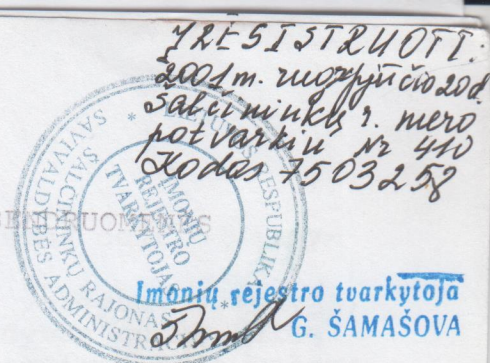 ĮREGISTRUOTI:
2001 m. rugpjūčio 20 d.
Šalčininkų r. mero
potvarkiu Nr 410
Kodas 7503258
LIETUVOS RESPUBLIKA
ŠALČININKŲ RAJONAS
SAVIVALDYBĖS ADMINISTRACIJA
ĮMONIŲ
REJESTRO
TVARKYTOJA
BENDRUOMENĖS
Įmonių rejestro tvarkytoja
G. ŠAMAŠOVA